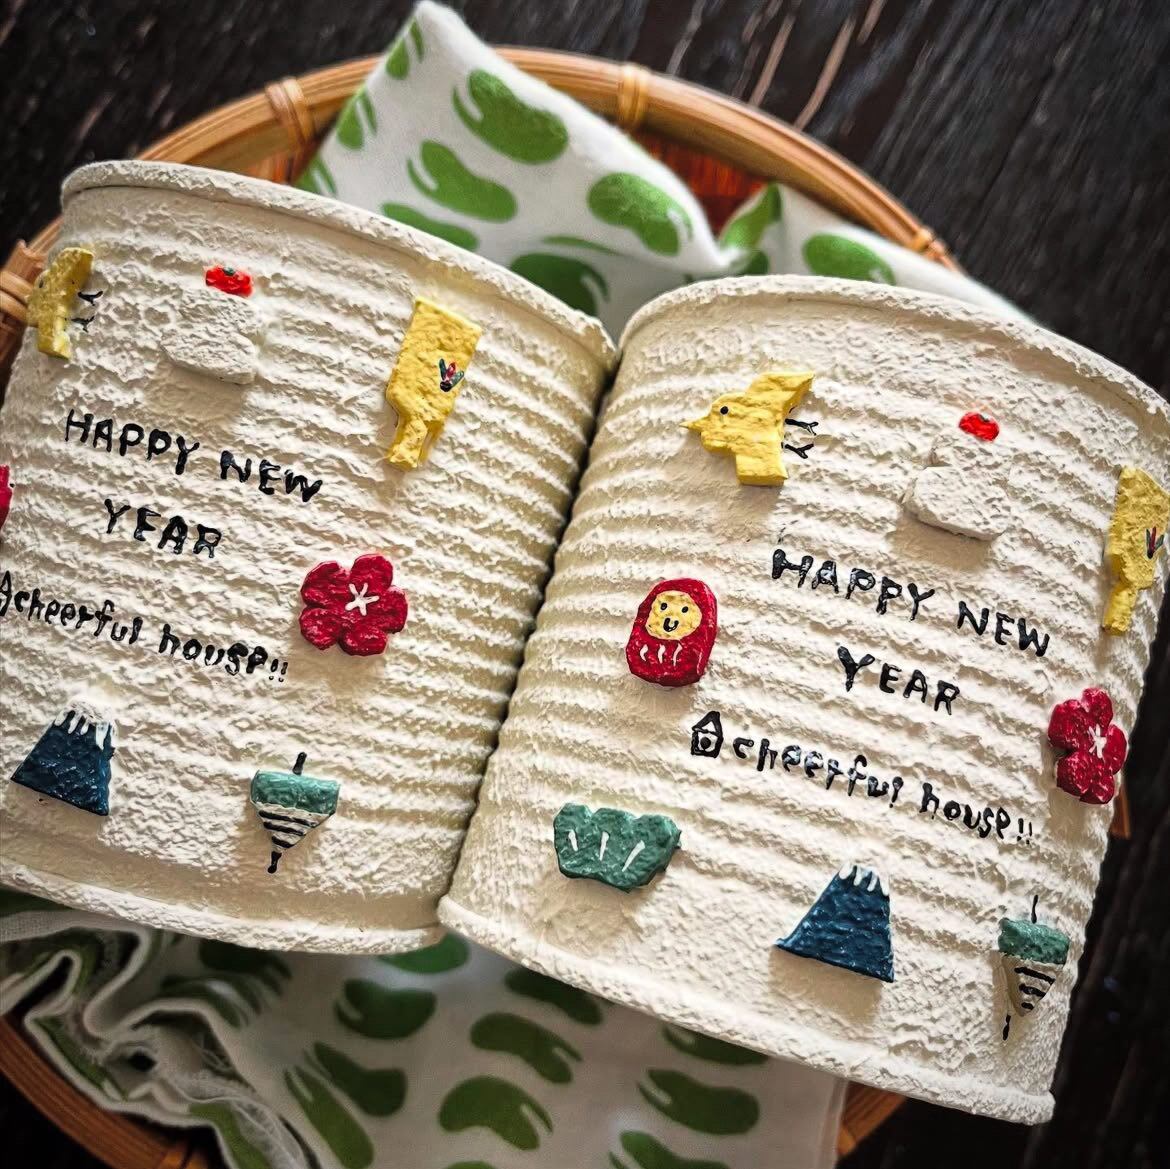 HAPPY NEW
YEAR
cheerful house!!
HAPPY NEW
YEAR
cheerful house!!